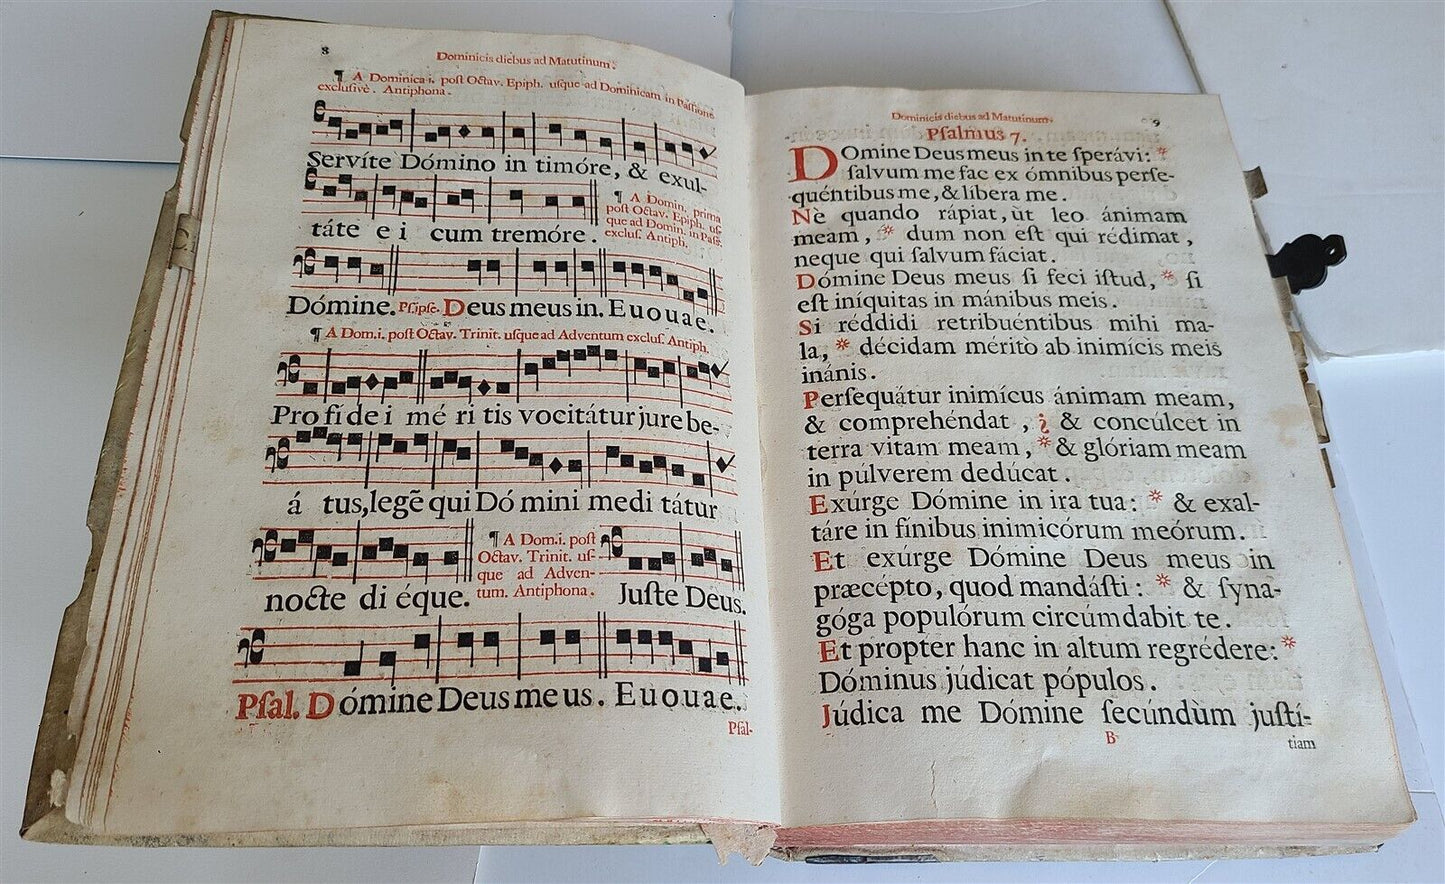 8
Dominicis diebus ad Matutinum.
¶ A Dominica i. poſt Octav. Epiph. uſque ad Dominicam in Paſſione
exclusivè. Antiphona.
Servíte Dómino in timóre, & exul-
táte e i cum tremóre.
¶ A Domin. prima
poſt Octav. Epiph. uſ-
que ad Domin. in Paſſ.
excluſ. Antiph.
Dómine. Pſ.ipſe. Deus meus in. E u o u a e.
¶ A Dom.i. poſt Octav. Trinit. uſque ad Adventum excluſ. Antiph.
Pro fi de i mé ri tis vocitátur jure be-
á tus, legẽ qui Dó mini medi tátur
¶ A Dom.i. poſt
Octav. Trinit. uſ-
que ad Adven-
tum. Antiphona.
nocte di éque. Juſte Deus.
Pſal. Dómine Deus me us. E u o u a e.
Pſal-
Dominicis diebus ad Matutinum.
9
Pſalmus 7.
DOmine Deus meus in te ſperávi: *
ſalvum me fac ex ómnibus perſe-
quéntibus me, & líbera me.
Nè quando rápiat, ùt leo ánimam
meam, * dum non eſt qui rédimat,
neque qui ſalvum fáciat.
Dómine Deus meus ſi feci iſtud, * ſi
eſt iníquitas in mánibus meis.
Si réddidi retribuéntibus mihi ma-
la, * décidam méritò ab inimícis meis
inánis.
Perſequátur inimícus ánimam meam,
& comprehéndat, ¿ & concúlcet in
terra vitam meam, * & glóriam meam
in púlverem dedúcat.
Exúrge Dómine in ira tua: * & exal-
táre in fínibus inimicórum meórum.
Et exúrge Dómine Deus meus in
præcépto, quod mandáſti: * & ſyna-
góga populórum circúmdabit te.
Et propter hanc in altum regrédere: *
Dóminus júdicat pópulos.
Júdica me Dómine ſecúndùm juſtí-
B
tiam